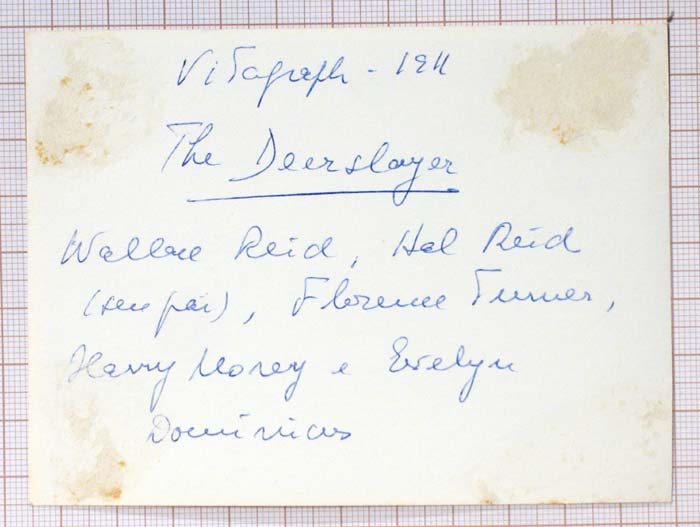 Vitagraph - 1911
The Deerslayer
Wallace Reid, Hal Reid
(seu pai), Florence Turner,
Harry Morey e Evelyn
Dominicus